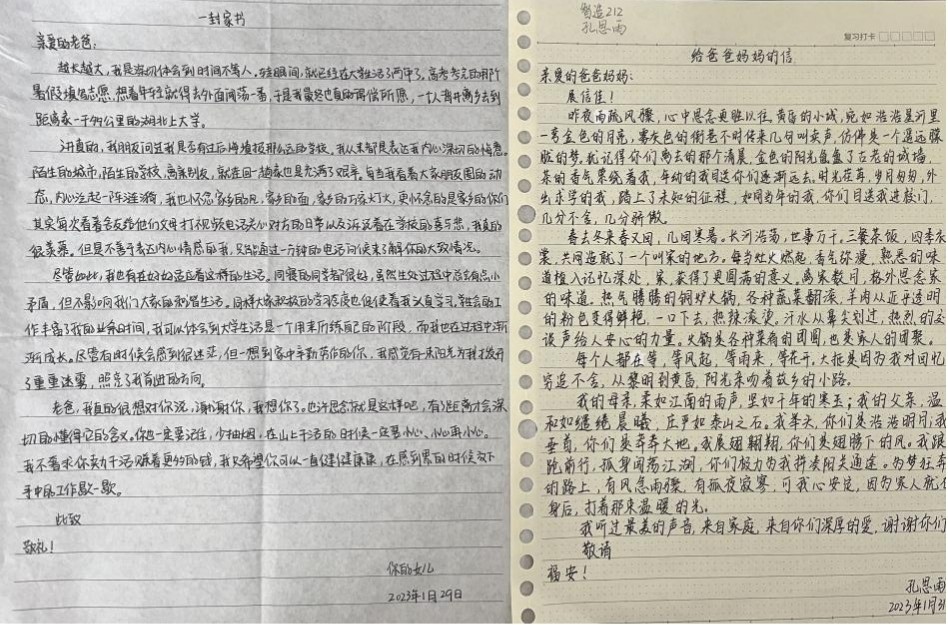 一封家书
亲爱的老爸：
越长越大，我是深切体会到时间不等人。转眼间，就已经在大学生活了两年了。高考考完的那个
暑假填报志愿，想着年轻就得去外面闯荡一番，于是我最终也真的得偿所愿，一个人背井离乡去到
距离家一千多公里的湖北上大学。
讲真的，我朋友问过我是否有过后悔填报那么远的学校，我从未都是表达我内心深切的悔意。
陌生的城市，陌生的学校，离家别友，就连回一趟家也是充满了艰辛。每当我看着大家朋友圈的动
态，内心泛起一阵涟漪，我也怀念家乡的风，家乡的面，家乡的万家灯火，更怀念的是家乡的你们
其实每次看着舍友跟他们父母打视频电话关心对方的日常以及诉说着在学校的喜与悲，我真的
很羡慕。但是不善于表达内心情感的我，只能通过一分钟的电话问候来了解你的大致情况。
尽管如此，我也有在好好适应着这样的生活，同寝的同学都很好，虽然生处过程中总会有点小
矛盾，但不影响我们大家的和谐生活。同样大家积极的学习态度也促使着我认真学习，班会的工
作丰富了我的业余时间，我可以体会到大学生活是一个用来历练自己的阶段，而我也在过程中渐
渐成长。尽管有时候会感到很迷茫，但一想到家中辛勤劳作的你，我感觉有一束阳光为我拨开
了重重迷雾，照亮了我前进的方向。
老爸，我真的很想对你说，谢谢你，我想你了。也许思念就是这样吧，有了距离才会深
切的懂得它的含义。你也一定要记住，少抽烟，在山上干活的时候一定要小心、小心再小心。
我不要求你卖力干活赚着更多的钱，我只希望你可以一直健健康康，在感到累的时候放下
手中的工作歇一歇。
此致
敬礼！
你的女儿
2023年1月29日
智造212
孔思雨
复习打卡
给爸爸妈妈的信
亲爱的爸爸妈妈：
展信佳！
昨夜雨疏风骤，心中思念更胜以往，黄昏的小城，宛如浩浩星河里
一弯金色的月亮，雾灰色的街巷不时传来几句叫卖声，仿佛是一个遥远朦
胧的梦。犹记得你们离去的那个清晨，金色的阳光盈盈了古老的城墙，
菜的香气萦绕着我，年幼的我目送你们逐渐远去。时光荏苒，岁月匆匆，外
出求学的我，踏上了未知的征程，如同当年的我，你们目送我进校门，
几分不舍，几分骄傲。
春去冬来春又回，几闻寒暑。长河浩荡，世事万千，三餐茶饭，四季衣
裳，共同造就了一个叫家的地方。每当灶火燃起，香气弥漫，熟悉的味
道植入记忆深处，家，获得了更圆满的意义。离家数月，格外思念家
的味道。热气腾腾的铜炉火锅，各种蔬菜翻滚，羊肉从近乎透明
的粉色变得鲜艳，一口下去，热辣滚烫。汗水从鼻尖划过，热烈的交
谈声给人安心的力量。火锅是各种菜肴的团圆，也是家人的团聚。
每个人都在等，等风起，等雨来，等花开，大抵是因为我对回忆
穷追不舍，从黎明到黄昏，阳光亲吻着故乡的小路。
我的母亲，柔如江南的雨声，坚如千年的寒玉；我的父亲，温
和如缱绻晨曦，庄严如泰山之石。我举天，你们是浩浩明月；我
垂首，你们是莽莽大地。我展翅翱翔，你们是翅膀下的风。我踉
跄前行，孤身闯荡江湖，你们极力为我拼凑阳关通途。为梦狂奔
的路上，有风急雨骤，有孤夜寂寥，可我心安定，因为家人就在
身后，打着那束温暖的光。
我听过最美的声音，来自家庭，来自你们深厚的爱，谢谢你们
敬诵
福安！
孔思雨
2023年1月31